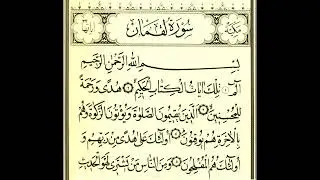 سُورَةُ لُقْمَانَ
بِسْمِ اللهِ الرَّحْمٰنِ الرَّحِيمِ
الٓمٓ تِلْكَ اٰيَاتُ الْكِتَابِ الْحَكِيمِ هُدًى وَرَحْمَةً
لِلْمُحْسِنِينَ الَّذِينَ يُقِيمُونَ الصَّلٰوةَ وَيُؤْتُونَ الزَّكٰوةَ وَهُمْ
بِالْاٰخِرَةِ هُمْ يُوقِنُونَ اُولٰئِكَ عَلٰى هُدًى مِنْ رَبِّهِمْ وَ
اُولٰئِكَ هُمُ الْمُفْلِحُونَ وَمِنَ النَّاسِ مَنْ يَشْتَرِى لَهْوَ الْحَدِيثِ